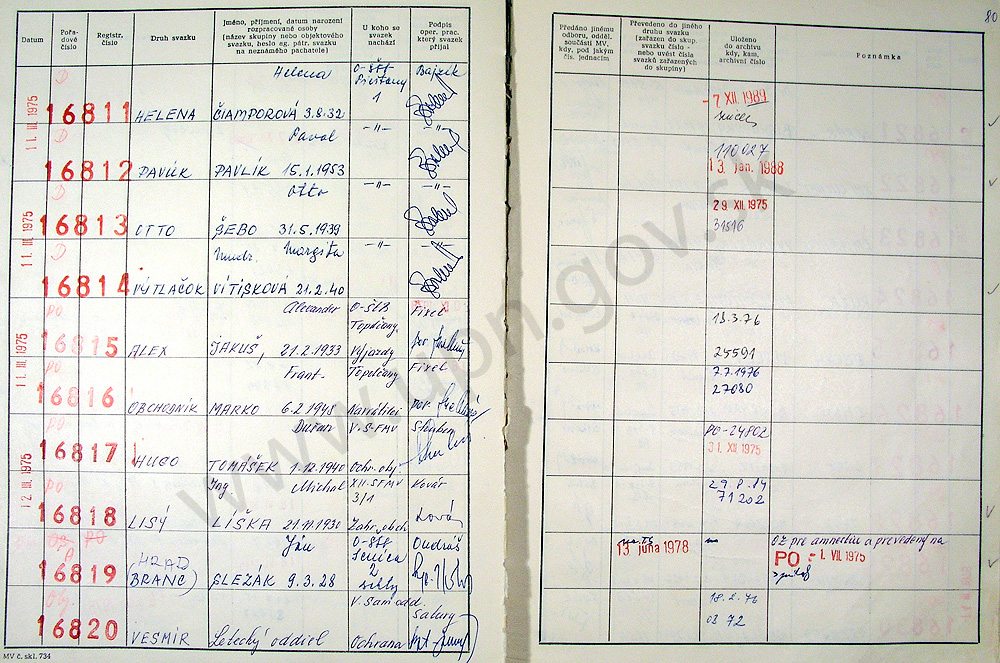 80
Datum
Pořadové číslo
Registr. číslo
Druh svazku
Jméno, příjmení, datum narození rozpracované osoby (název skupiny nebo objektového svazku, heslo ag. pátr. svazku na neznámého pachatele)
U koho se svazek nachází
Podpis oper. prac. který svazek přijal
Předáno jinému odboru, odděl. součásti MV, kdy, pod jakým čís. jednacím
Převedeno do jiného druhu svazku (zařazen do skup. svazku číslo - nebo uvést čísla svazků zařazených do skupiny)
Uloženo do archivu kdy, kam, archivní číslo
Poznámka
D Helena O-ŠtB Bajzík
Piešťany
11. III. 1975 16811 HELENA ČIAMPOROVÁ 3.8.32 1
- 7 XII. 1989
D Pavol -"- -"-
16812 PAVLÍK PAVLÍK 15.1.1953
110027
13. jan. 1988
D Otto -"- -"-
11. III. 1975 16813 OTTO ŠEBO 31.5.1939
29 XII. 1975
31816
D Mudr. Margita -"-
16814 VÝTLAČOK VÍTIŠKOVÁ 21.2.40
PO Alexander O-ŠtB Fixel
Topoľčany
11. III. 1975 16815 ALEX JAKUŠ, 21.2.1933 Výjazdy
19.3.76
25591
PO Frant. Topoľčany Fixel
16816 OBCHODNÍK MARKO 6.2.1948 Navrátilci por.
7.7.1976
27080
PO Dušan V-S-FMV
16817 HUGO TOMÁŠEK 1.12.1940 Ochr. obj.
PO-24802
31 XII. 1975
12. III. 1975 PO Ing Michal XII-SFMV Kovár
3/1
16818 LISÝ LÍŠKA 21.11.1930 Zahr. obch. Kovár
29.8.84
71202
PO Ján O-ŠtB Ondruš
A (HRAD Senica
16819 BRANČ) SLEZÁK 9.3.28 2
13. júna 1978
OZ pre amnestiu a prevedený na
PO - 1. VII. 1975
Obj. V. Sam odd.
16820 VESMÍR Letecký oddiel Ochrana
18.2.76
03 72
MV č. skl. 734
www.upn.gov.sk